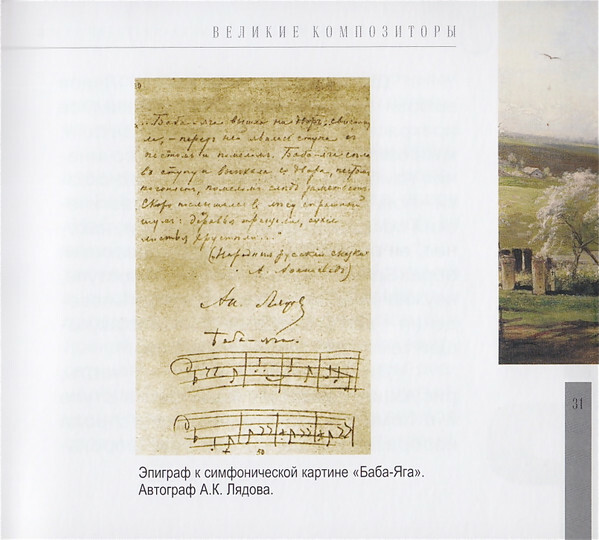 ВЕЛИКИЕ КОМПОЗИТОРЫ
„Баба-яга вышла на дворъ, свистну-
ла, – передъ ней явилась ступа съ
пестомъ и помеломъ. Баба-яга села
въ ступу и выехала со двора, пестомъ
погоняетъ, помеломъ следъ заметаетъ.
Скоро послышался въ лесу страшный
шумъ: деревья трещали, сухіе
листья хрустели..."
(Народныя русскія сказки
А. Аѳанасьевъ)
Ан. Лядовъ
Баба-яга.
50
Эпиграф к симфонической картине «Баба-Яга».
Автограф А.К. Лядова.
31